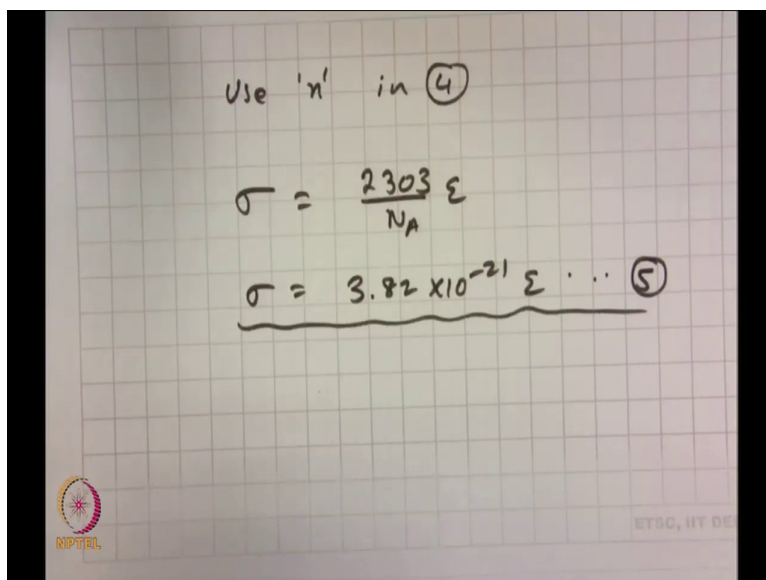 Use 'n' in ④
σ = 2303/N_A ε
σ = 3.82 x10⁻²¹ ε ... ⑤
NPTEL
ETSC, IIT DE